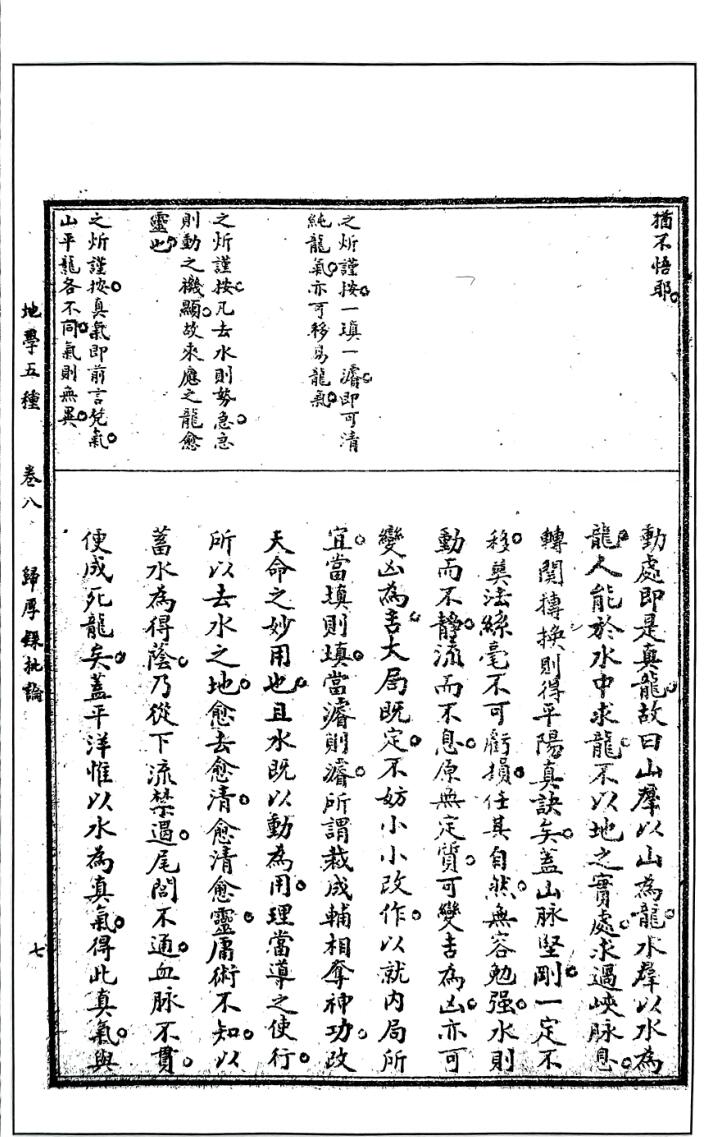 猶不悟耶
之炘謹按一塡一濬即可清
純龍氣亦可移易龍氣
之炘謹按凡去水則勢急急
則動之機顯故來應之龍愈
靈也
之炘謹按真氣即前言兌氣
山平龍各不同氣則無異
動處即是真龍故曰山羣以山為龍水羣以水為
龍人能於水中求龍不以地之實處求過峽脉息
轉関摶換則得平陽真訣矣蓋山脉堅剛一定不
移奠法絲毫不可虧損任其自然無容勉强水則
動而不靜流而不息原無定質可變吉為凶亦可
變凶為吉大局既定不妨小小改作以就内局所
宜當塡則塡當濬則濬所謂裁成輔相奪神功改
天命之妙用也且水既以動為用理當導之使行
所以去水之地愈去愈清愈清愈靈庸術不知以
蓄水為得蔭乃從下流禁遏尾閭不通血脉不貫
便成死龍矣蓋平洋惟以水為真氣得此真氣與
地學五種 卷八 歸厚錄批論 七